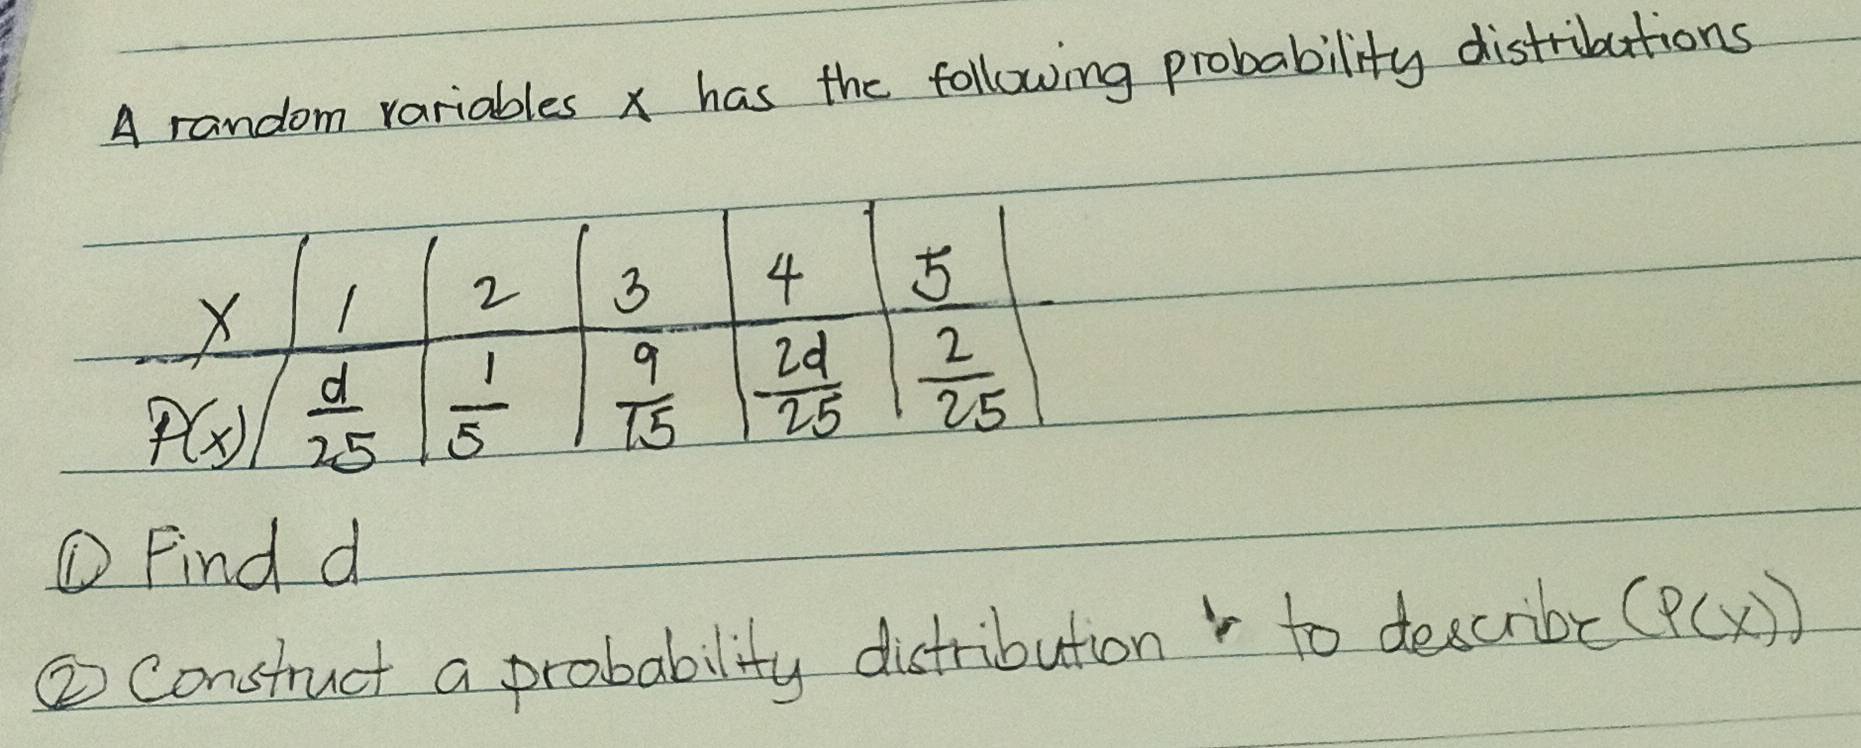 A random variables x has the following probability distributions
X | 1 | 2 | 3 | 4 | 5 |
P(x) | d/25 | 1/5 | 9/15 | 2d/25 | 2/25 |
① Find d
② Construct a probability distribution to describe (P(x))